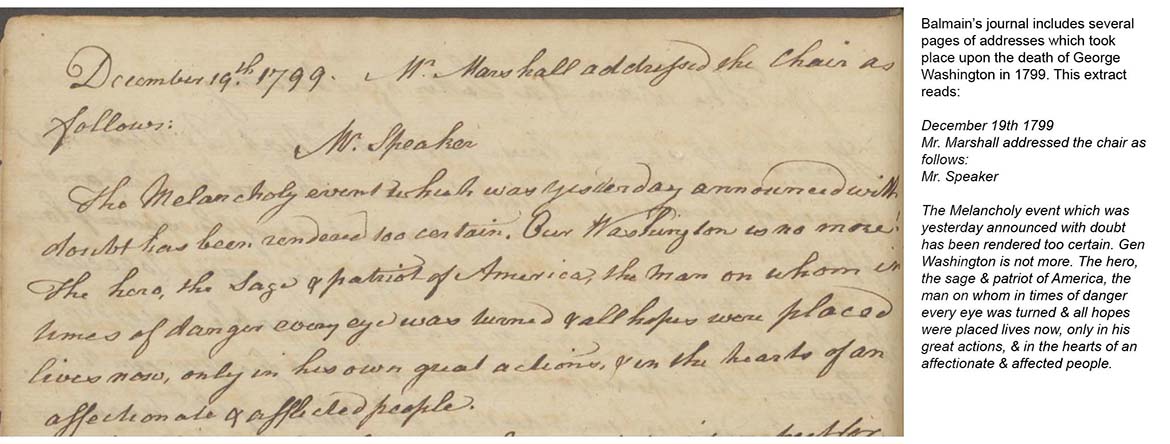 December 19th. 1799. Mr. Marshall addressed the Chair as
follows:
Mr. Speaker
The Melancholy event which was yesterday announced with
doubt has been rendered too certain. Our Washington is no more!
The hero, the Sage & patriot of America, the Man on whom in
times of danger every eye was turned & all hopes were placed
lives now, only in his own great actions, & in the hearts of an
affectionate & afflicted people.
Balmain's journal includes several
pages of addresses which took
place upon the death of George
Washington in 1799. This extract
reads:
December 19th 1799
Mr. Marshall addressed the chair as
follows:
Mr. Speaker
The Melancholy event which was
yesterday announced with doubt
has been rendered too certain. Gen
Washington is not more. The hero,
the sage & patriot of America, the
man on whom in times of danger
every eye was turned & all hopes
were placed lives now, only in his
great actions, & in the hearts of an
affectionate & affected people.